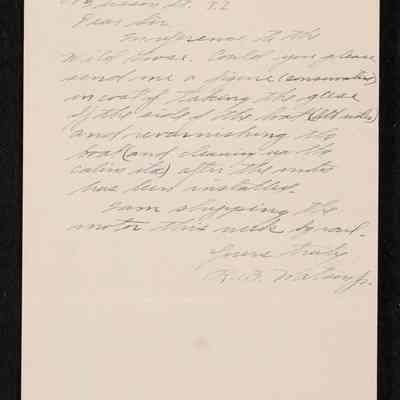 Dear Sir,
In reference to the
Wild Goose. Could you please
send me a figure (conservative)
in cost of taking the glass
off the sides of the boat (both sides)
and revarnishing the
boat (and cleaning up the
cabin etc) after the motor
has been installed.
I am shipping the
motor this week by rail.
Yours truly
R.B. Watson Jr.